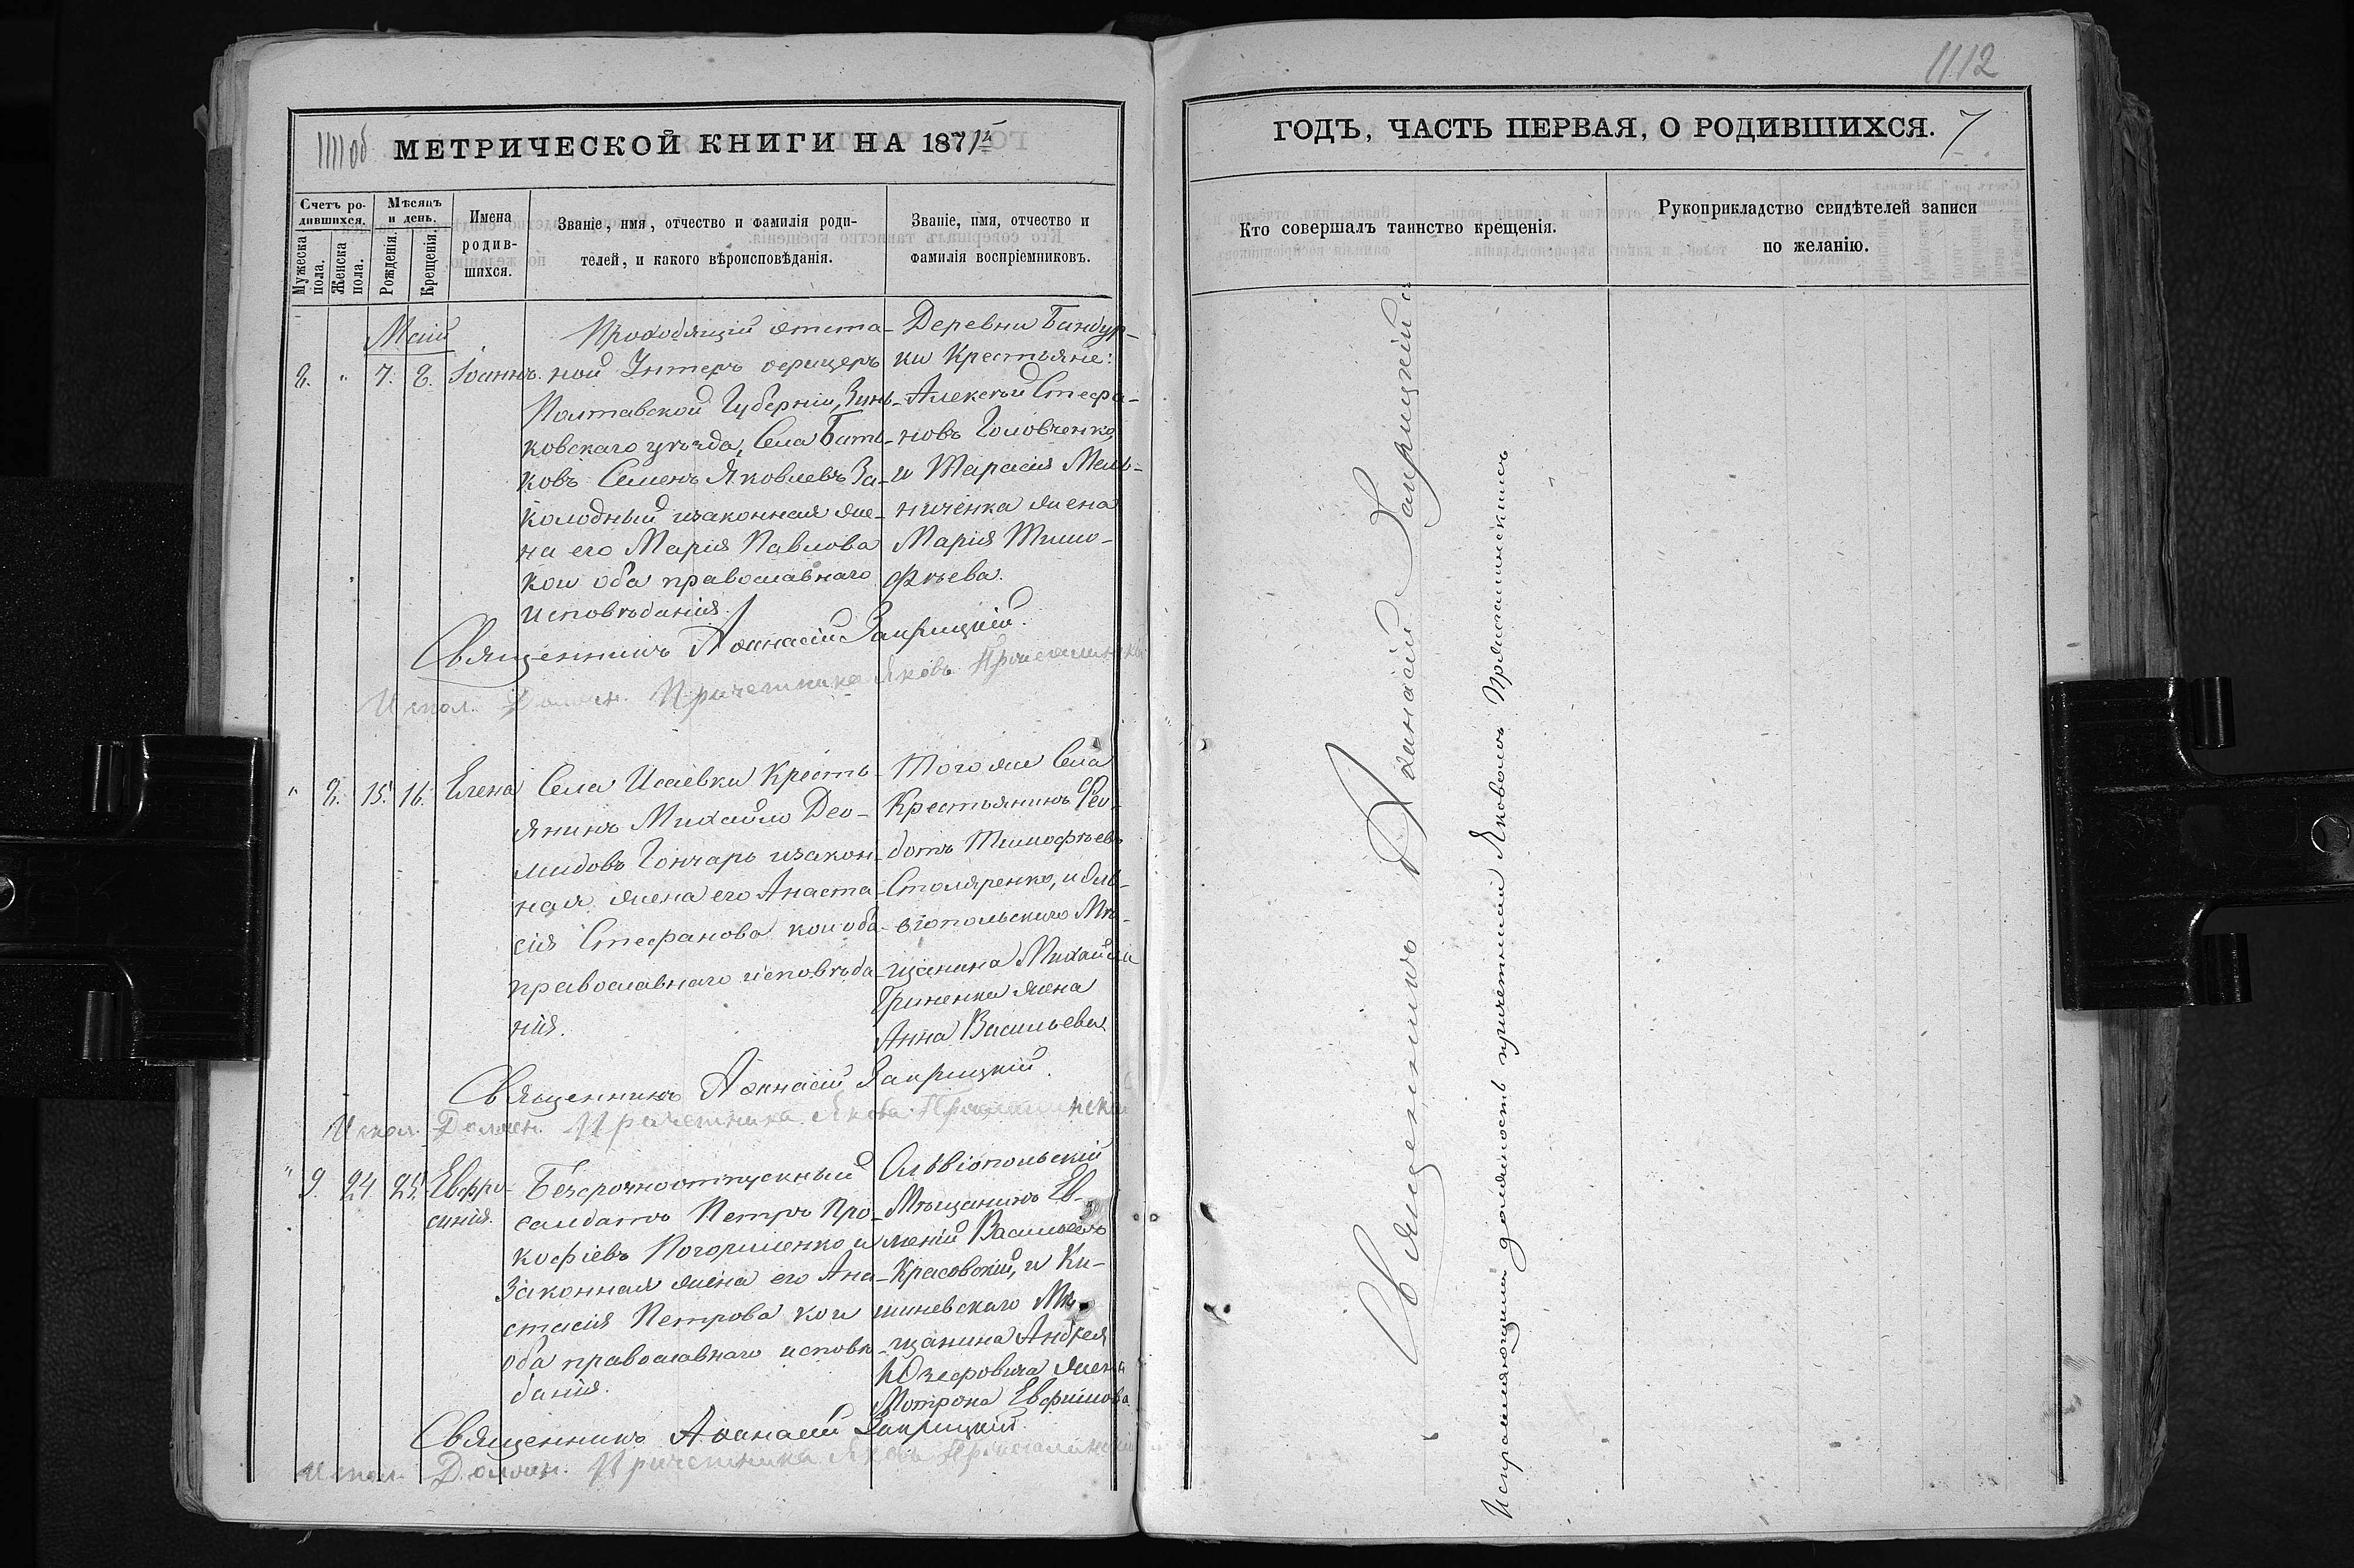 1111 об
МЕТРИЧЕСКОЙ КНИГИ НА 1871й
Счетъ ро-
дившихся.
Мѣсяцъ
и день.
Мужеска
пола.
Женска
пола.
Рожденія.
Крещенія.
Имена
родив-
шихся.
Званіе, имя, отчество и фамилія роди-
телей, и какого вѣроисповѣданія.
Званіе, имя, отчество и
фамилія воспріемниковъ.
Май
8. " 7. 8. Іоаннъ.
Проходящій отста-
ной Унтеръ офицеръ
Полтавской Губерніи, Зинь-
ковскаго уѣзда, Села Бать-
ковъ Семенъ Яковлевъ За-
колодный изаконная же-
на его Марія Павлова
кои оба православнаго
исповѣданія.
Деревни Бандур-
ки Крестьяне:
Алексѣй Стефа-
новъ Головченко,
и Тарасія Мель-
ниченка жена
Марія Тимо-
фѣева.
Священникъ Аѳанасій Закрицкій.
Испол. Должн. Причетника Яковъ
" 8. 15. 16. Елена
Села Исаевки Кресть-
янинъ Михайло Део-
мидовъ Гончаръ изакон-
ная жена его Анаста-
сія Стефанова кои оба
православнаго исповѣда-
нія.
Того же Села
Крестьянинъ Ѳео-
дотъ Тимофѣевъ
Столяренко, и Оль-
віопольскаго Мѣ-
щанина Михайла
Гриненка жена
Анна Васильева
Священникъ Аѳанасій Закрицкій.
Испол. Должн. Причетника Яковъ
" 9. 24 25. Евфро-
синія.
Безсрочноотпускный
салдатъ Петръ Про-
кофіевъ Погориленко и
Законная жена его Ана-
стасія Петрова кои
оба православнаго исповѣ-
данія.
Ольвіопольскій
Мѣщанинъ Ев-
меній Васильевъ
Красовскій, и Ки-
шиневскаго Мѣ-
щанина Андрея
Юзефовича жена
Мотрона Евфимова.
Священникъ Аѳанасій Закрицкій
Испол. Должн. Причетника Яковъ
1112
ГОДЪ, ЧАСТЬ ПЕРВАЯ, О РОДИВШИХСЯ. 7
Кто совершалъ таинство крещенія.
Рукоприкладство свидѣтелей записи
по желанію.
Священникъ Аѳанасій Закрицкій съ
Исправляющимъ должность причетника Яковомъ